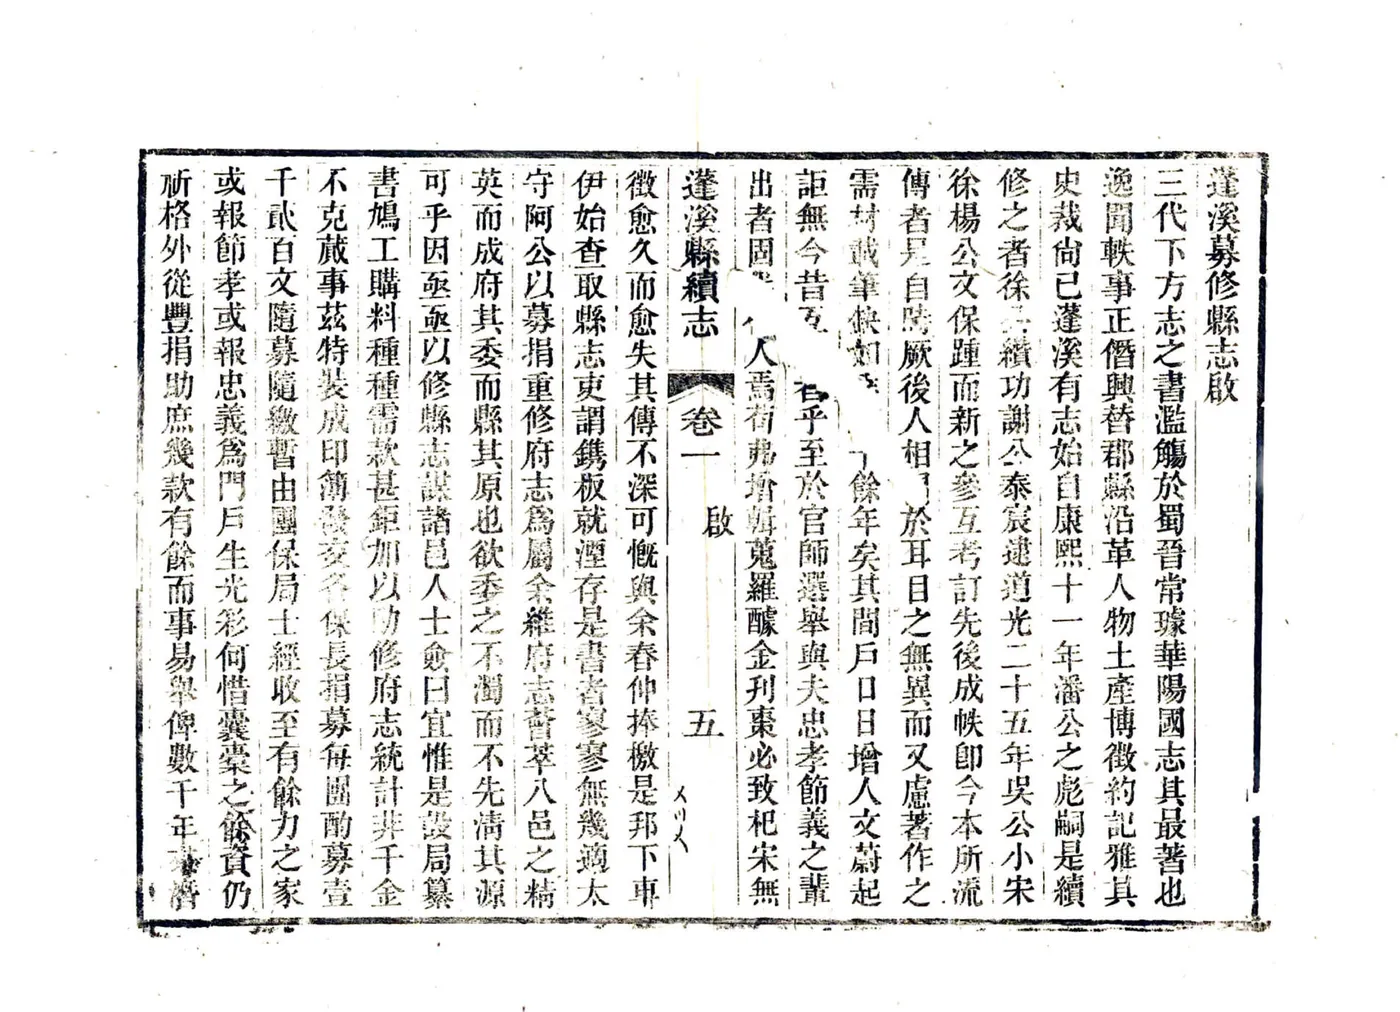 蓬溪募修縣志啟
三代下方志之書濫觴於蜀晉常璩華陽國志其最著也
逸聞軼事正僭興替郡縣沿革人物土產博徵約記雅其
史裁尙已蓬溪有志始自康熙十一年潘公之彪嗣是續
修之者徐公纘功謝公泰宸逮道光二十五年吳公小宋
徐楊公文保踵而新之參互考訂先後成帙卽今本所流
傳者是自時厥後人相 於耳目之無異而又慮著作之
需材載筆缺如 十餘年矣其間戶口日增人文蔚起
詎無今昔互 者乎至於官師選舉與夫忠孝節義之輩
出者固 人焉苟弗增輯蒐羅醵金刊棗必致杞宋無
蓬溪縣續志 卷一 啟 五
徵愈久而愈失其傳不深可慨與余春仲捧檄是邦下車
伊始查取縣志吏謂鐫板就湮存是書者寥寥無幾適太
守阿公以募捐重修府志爲屬余維府志薈萃八邑之精
英而成府其委而縣其原也欲委之不濁而不先淸其源
可乎因亟亟以修縣志謀諸邑人士僉曰宜惟是設局纂
書鳩工購料種種需款甚鉅加以助修府志統計非千金
不克蕆事茲特裝成印簿發交各保長捐募每團酌募壹
千貳百文隨募隨繳暫由團保局士經收至有餘力之家
或報節孝或報忠義爲門戶生光彩何惜囊橐之餘資仍
祈格外從豐捐助庶幾款有餘而事易舉俾數千年